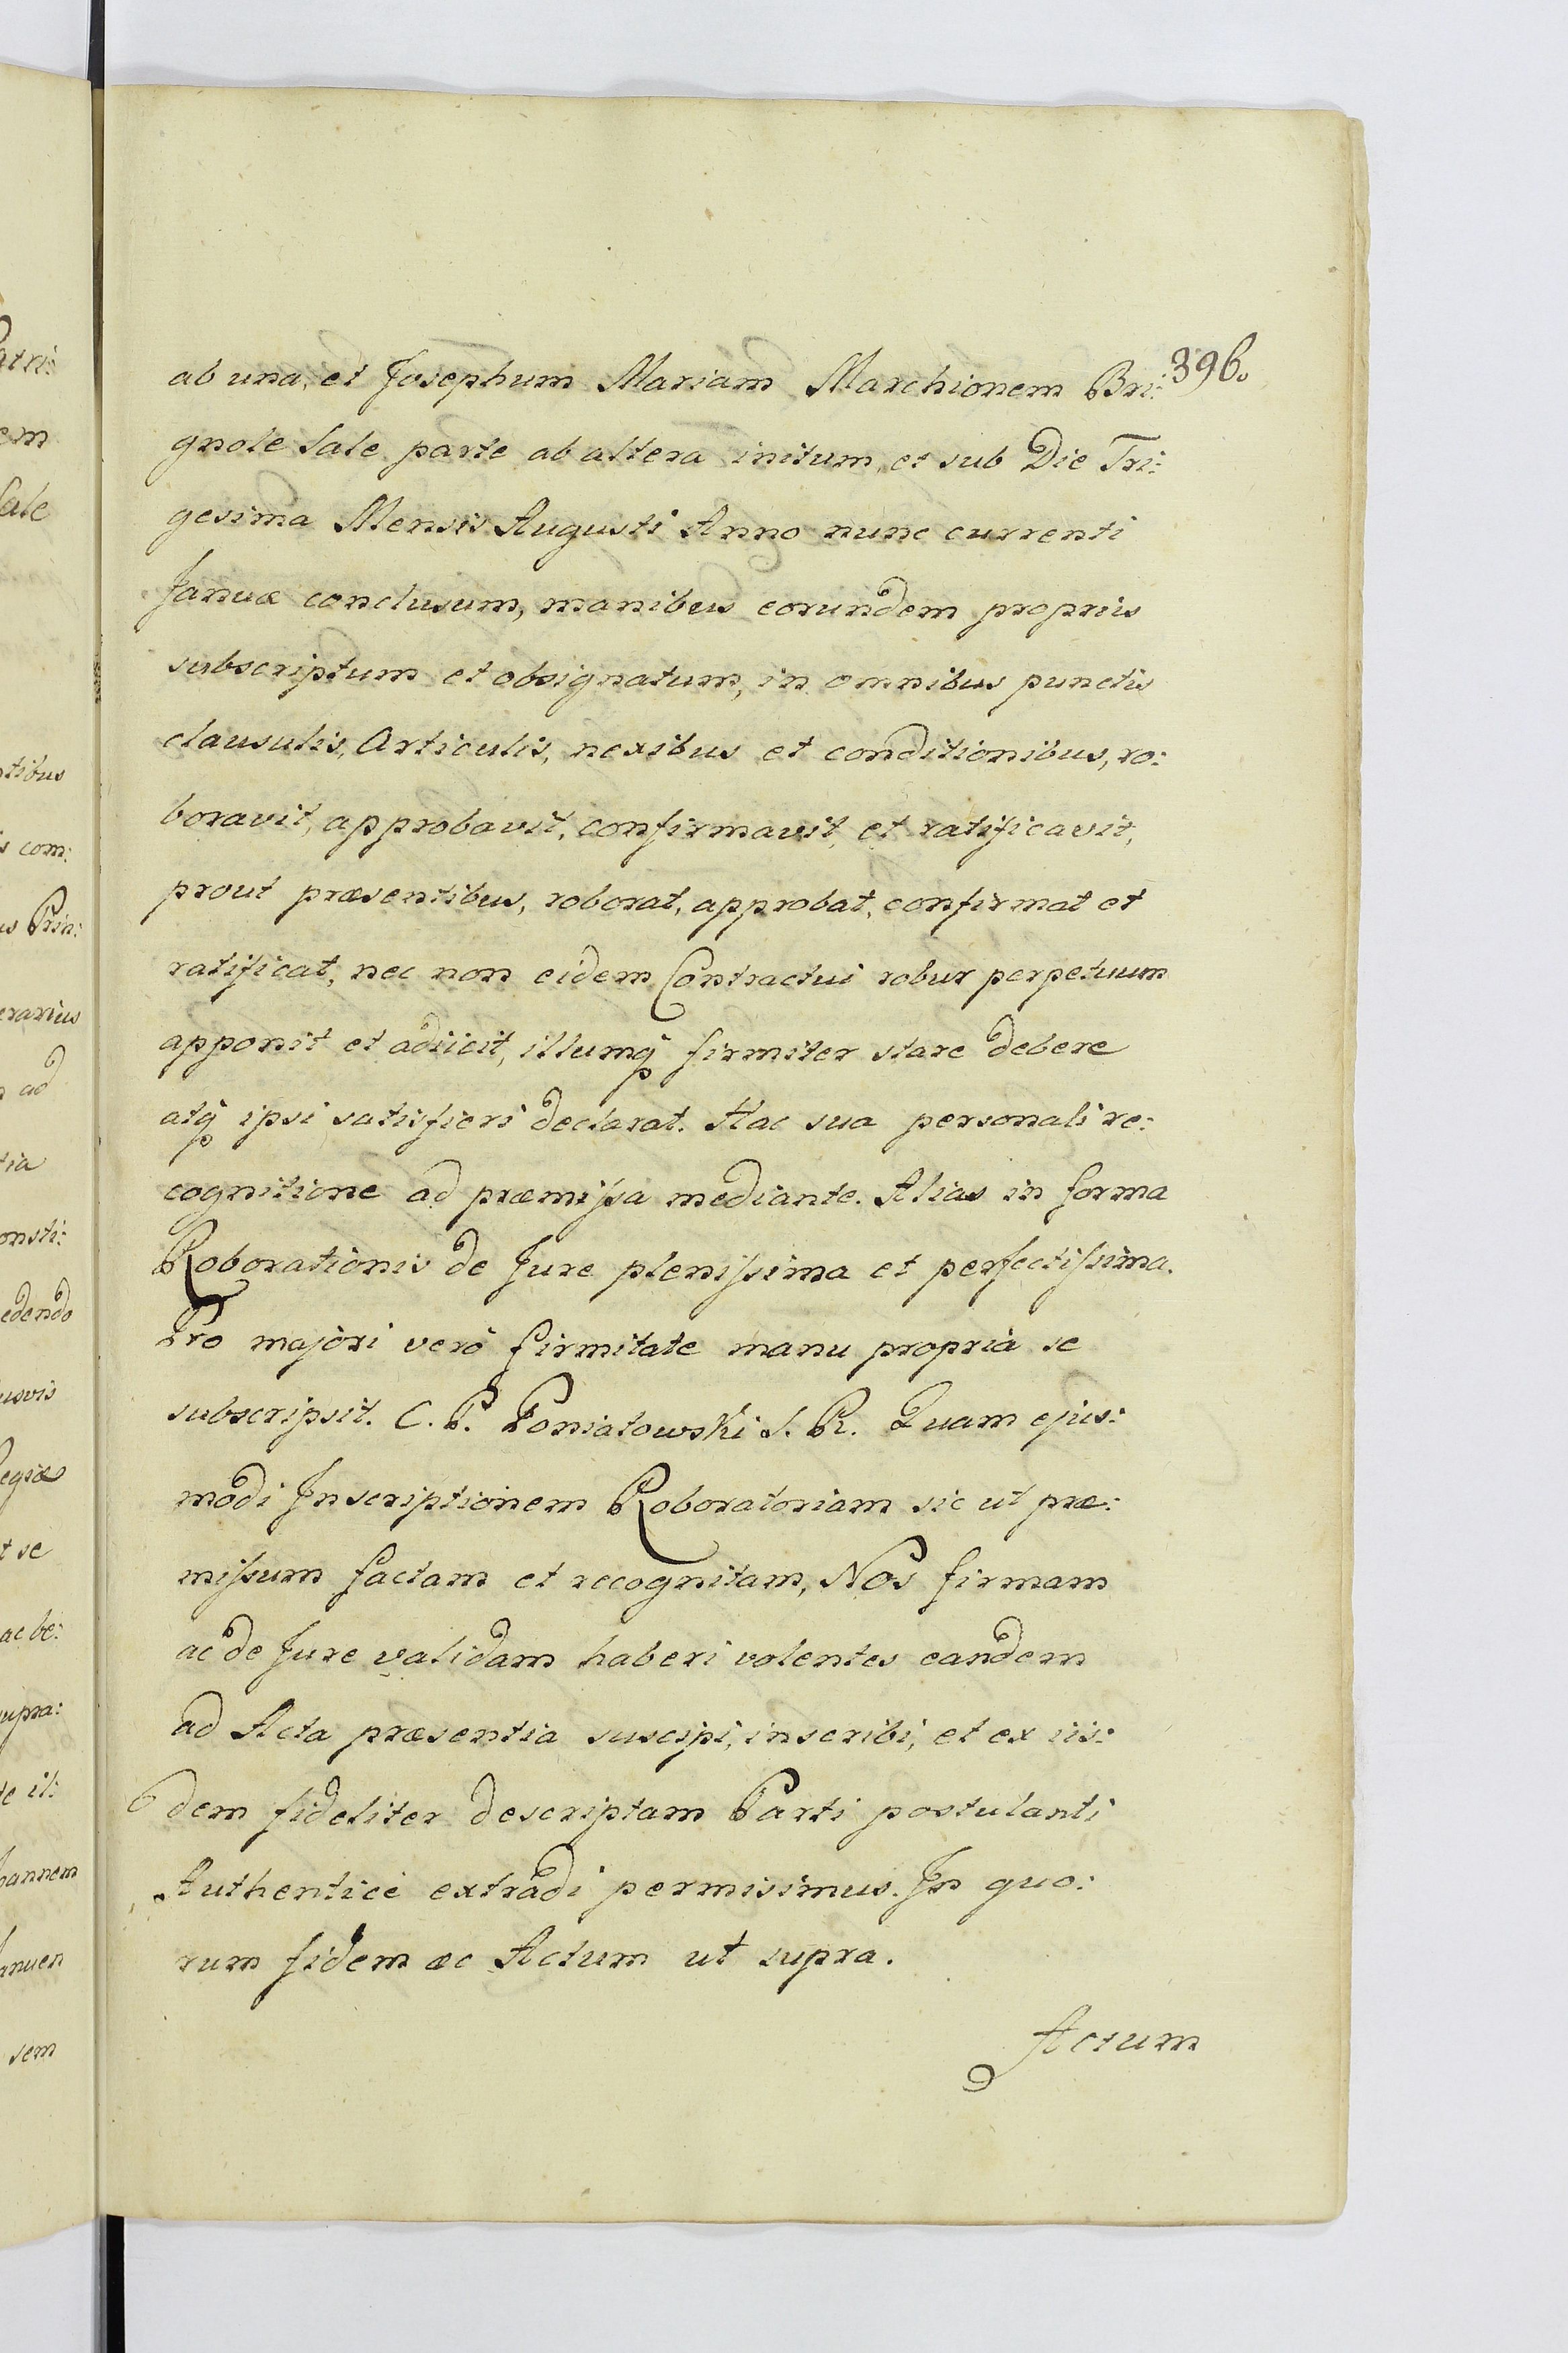 396.
ab una, et Josephum Mariam Marchionem Bri:
gnole Sale parte ab altera initum, et sub Die Tri:
gesima Mensis Augusti Anno nunc currenti
Januæ conclusum, manibus eorundem propriis
subscriptum et obsignatum, in omnibus punctis
clausulis, Articulis, nexibus et conditionibus, ro:
boravit, approbavit, confirmavit, et ratificavit,
prout præsentibus, roborat, approbat, confirmat et
ratificat, nec non eidem Contractui robur perpetuum
apponit et adiicit, illumq̃ firmiter stare debere
atq̃ ipsi satisfieri declarat. Hac sua personali re:
cognitione ad præmissa mediante. Alias in forma
Roborationis de Jure plenissima et perfectissima.
Pro majori verò firmitate manu propria se
subscripsit. C. P. Poniatowski S. R. Quam ejus:
modi Inscriptionem Roboratoriam sic ut præ:
missum factam et recognitam, Nos firmam
ac de Jure validam haberi volentes eandem
ad Acta præsentia suscipi, inscribi, et ex iis:
dem fideliter descriptam Parti postulanti
Authenticè extradi permisimus. In quo:
rum fidem ac Actum ut supra.
Actum
atri:
em
Sale
tibus
com:
Prin:
erarius
ad
tia
onsti:
edendo
usvis
egiæ
t se
ac be:
upra:
il:
hannem
anuen
sem